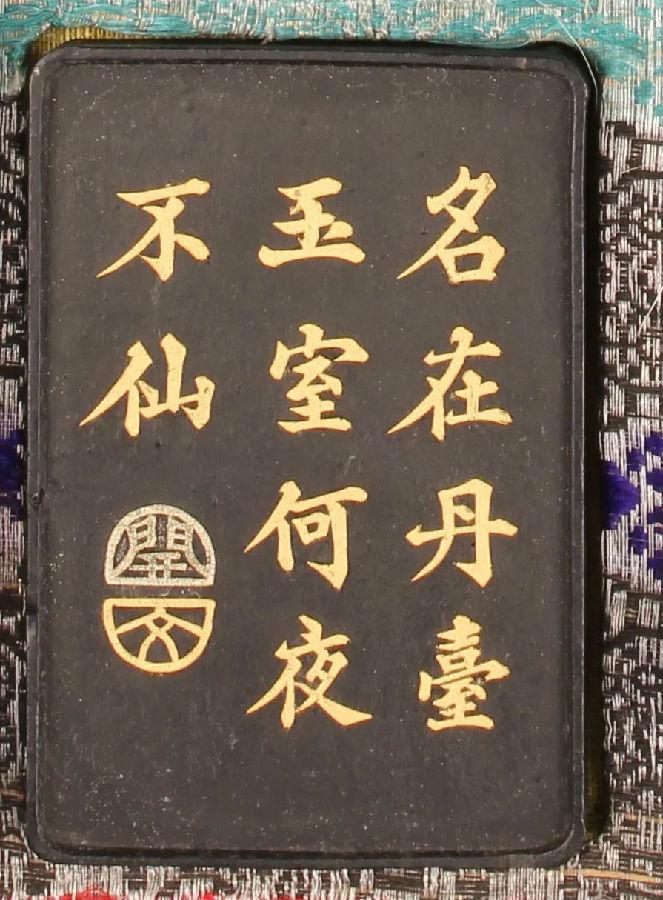 名在丹臺
玉室何夜
不仙
開文